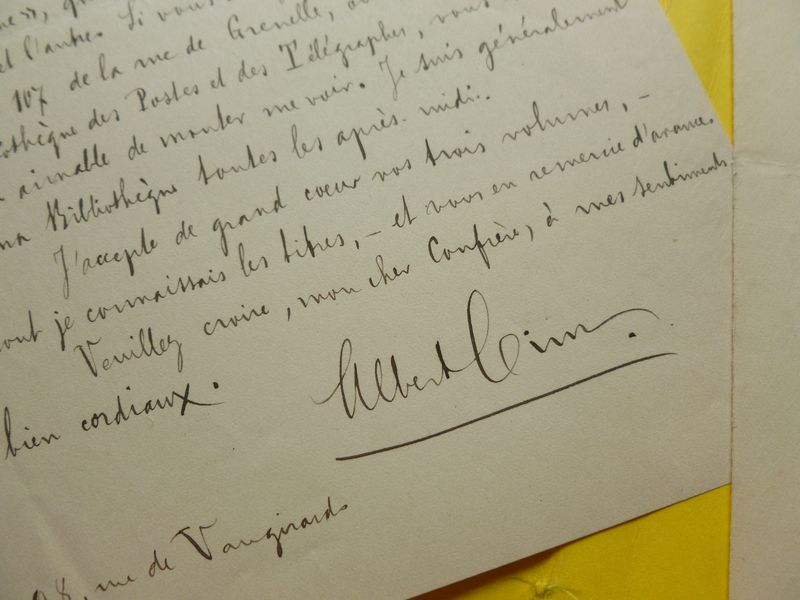 et l'autre. Si vous
107 de la rue de Grenelle,
des Postes et des Télégraphes, vous
aimable de monter me voir. Je suis généralement
ma Bibliothèque toutes les après-midi.
J'accepte de grand coeur vos trois volumes, –
dont je connaissais les titres, – et vous en remercie d'avance.
Veuillez croire, mon cher Confrère, à mes sentiments
bien cordiaux.
Albert Cim.
rue de Vaugirard